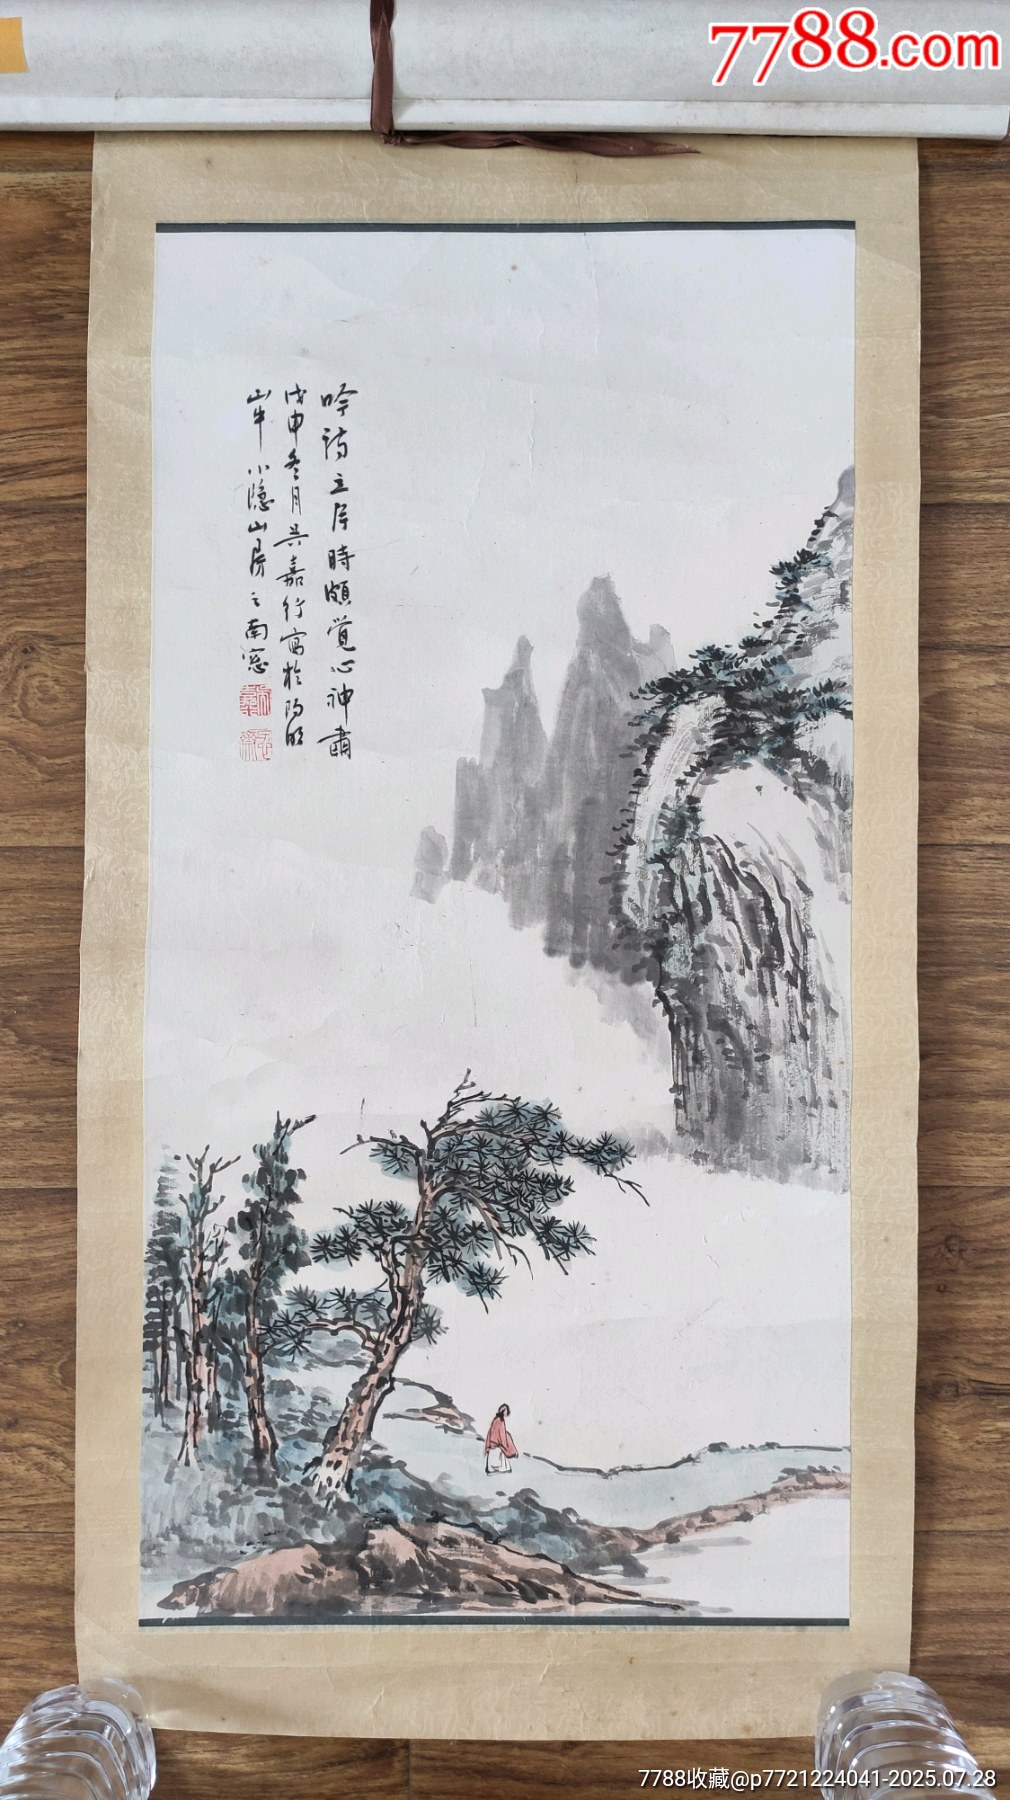 7788.com
吟詩立片時頗覺心神肅
戊申冬月吳嘉行寫於陽明
山半小隱山房之南窓
7788收藏@p7721224041-2025.07.28